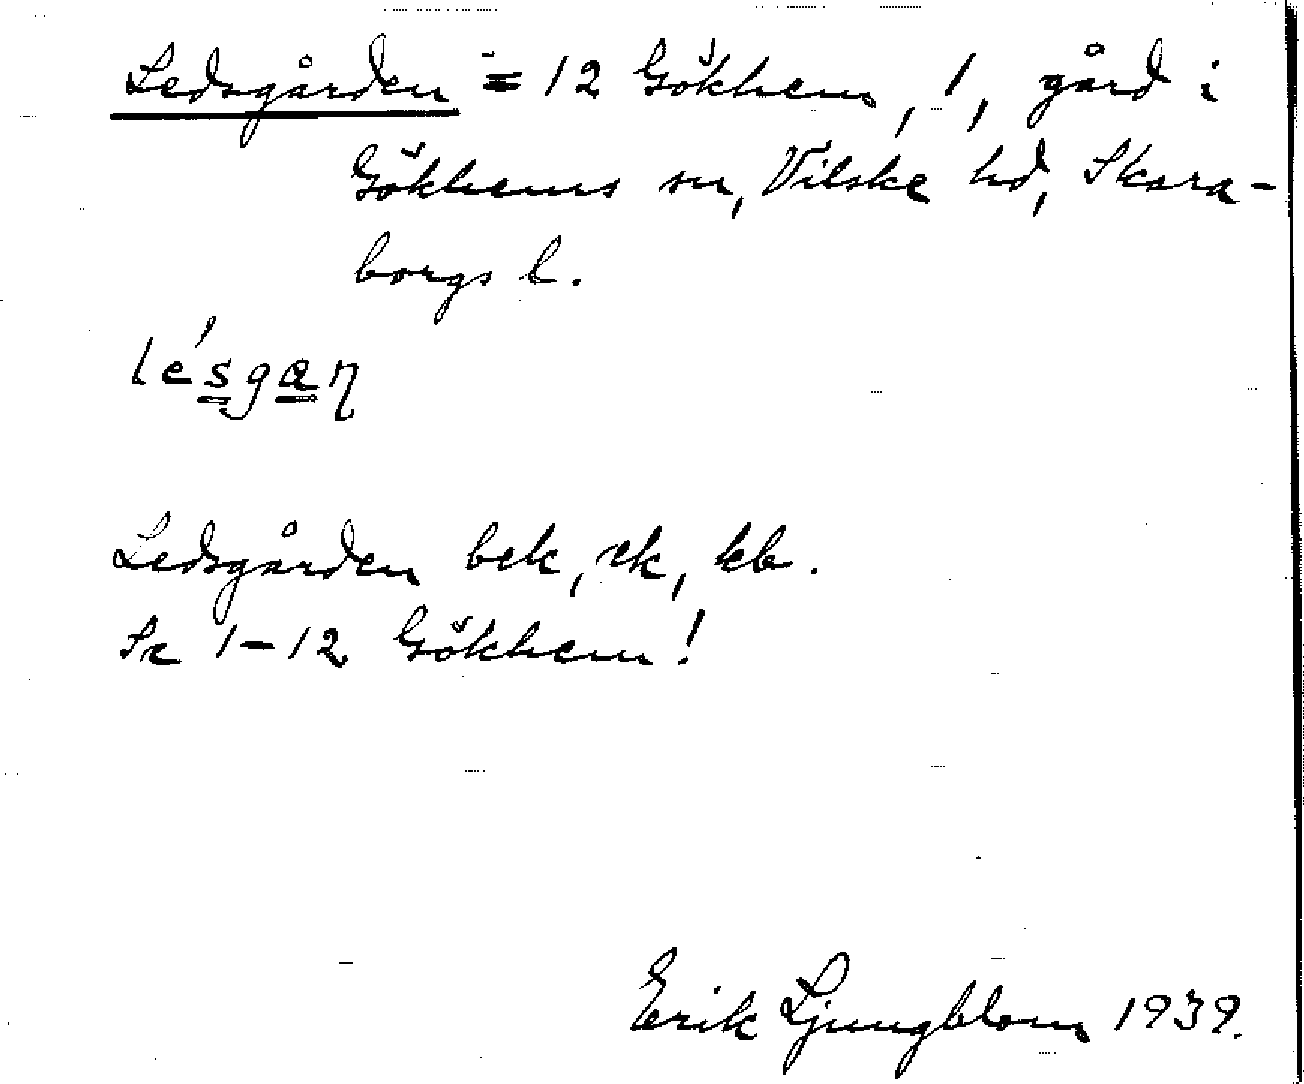 Ledsgården = 12 Gökhem, 1, gård i
Gökhems sn, Vilske hd, Skara-
borgs l.
lésgaꞃ
Ledsgården bek, rk, kb.
Se 1-12 Gökhem!
Erik Ljungblom 1939.